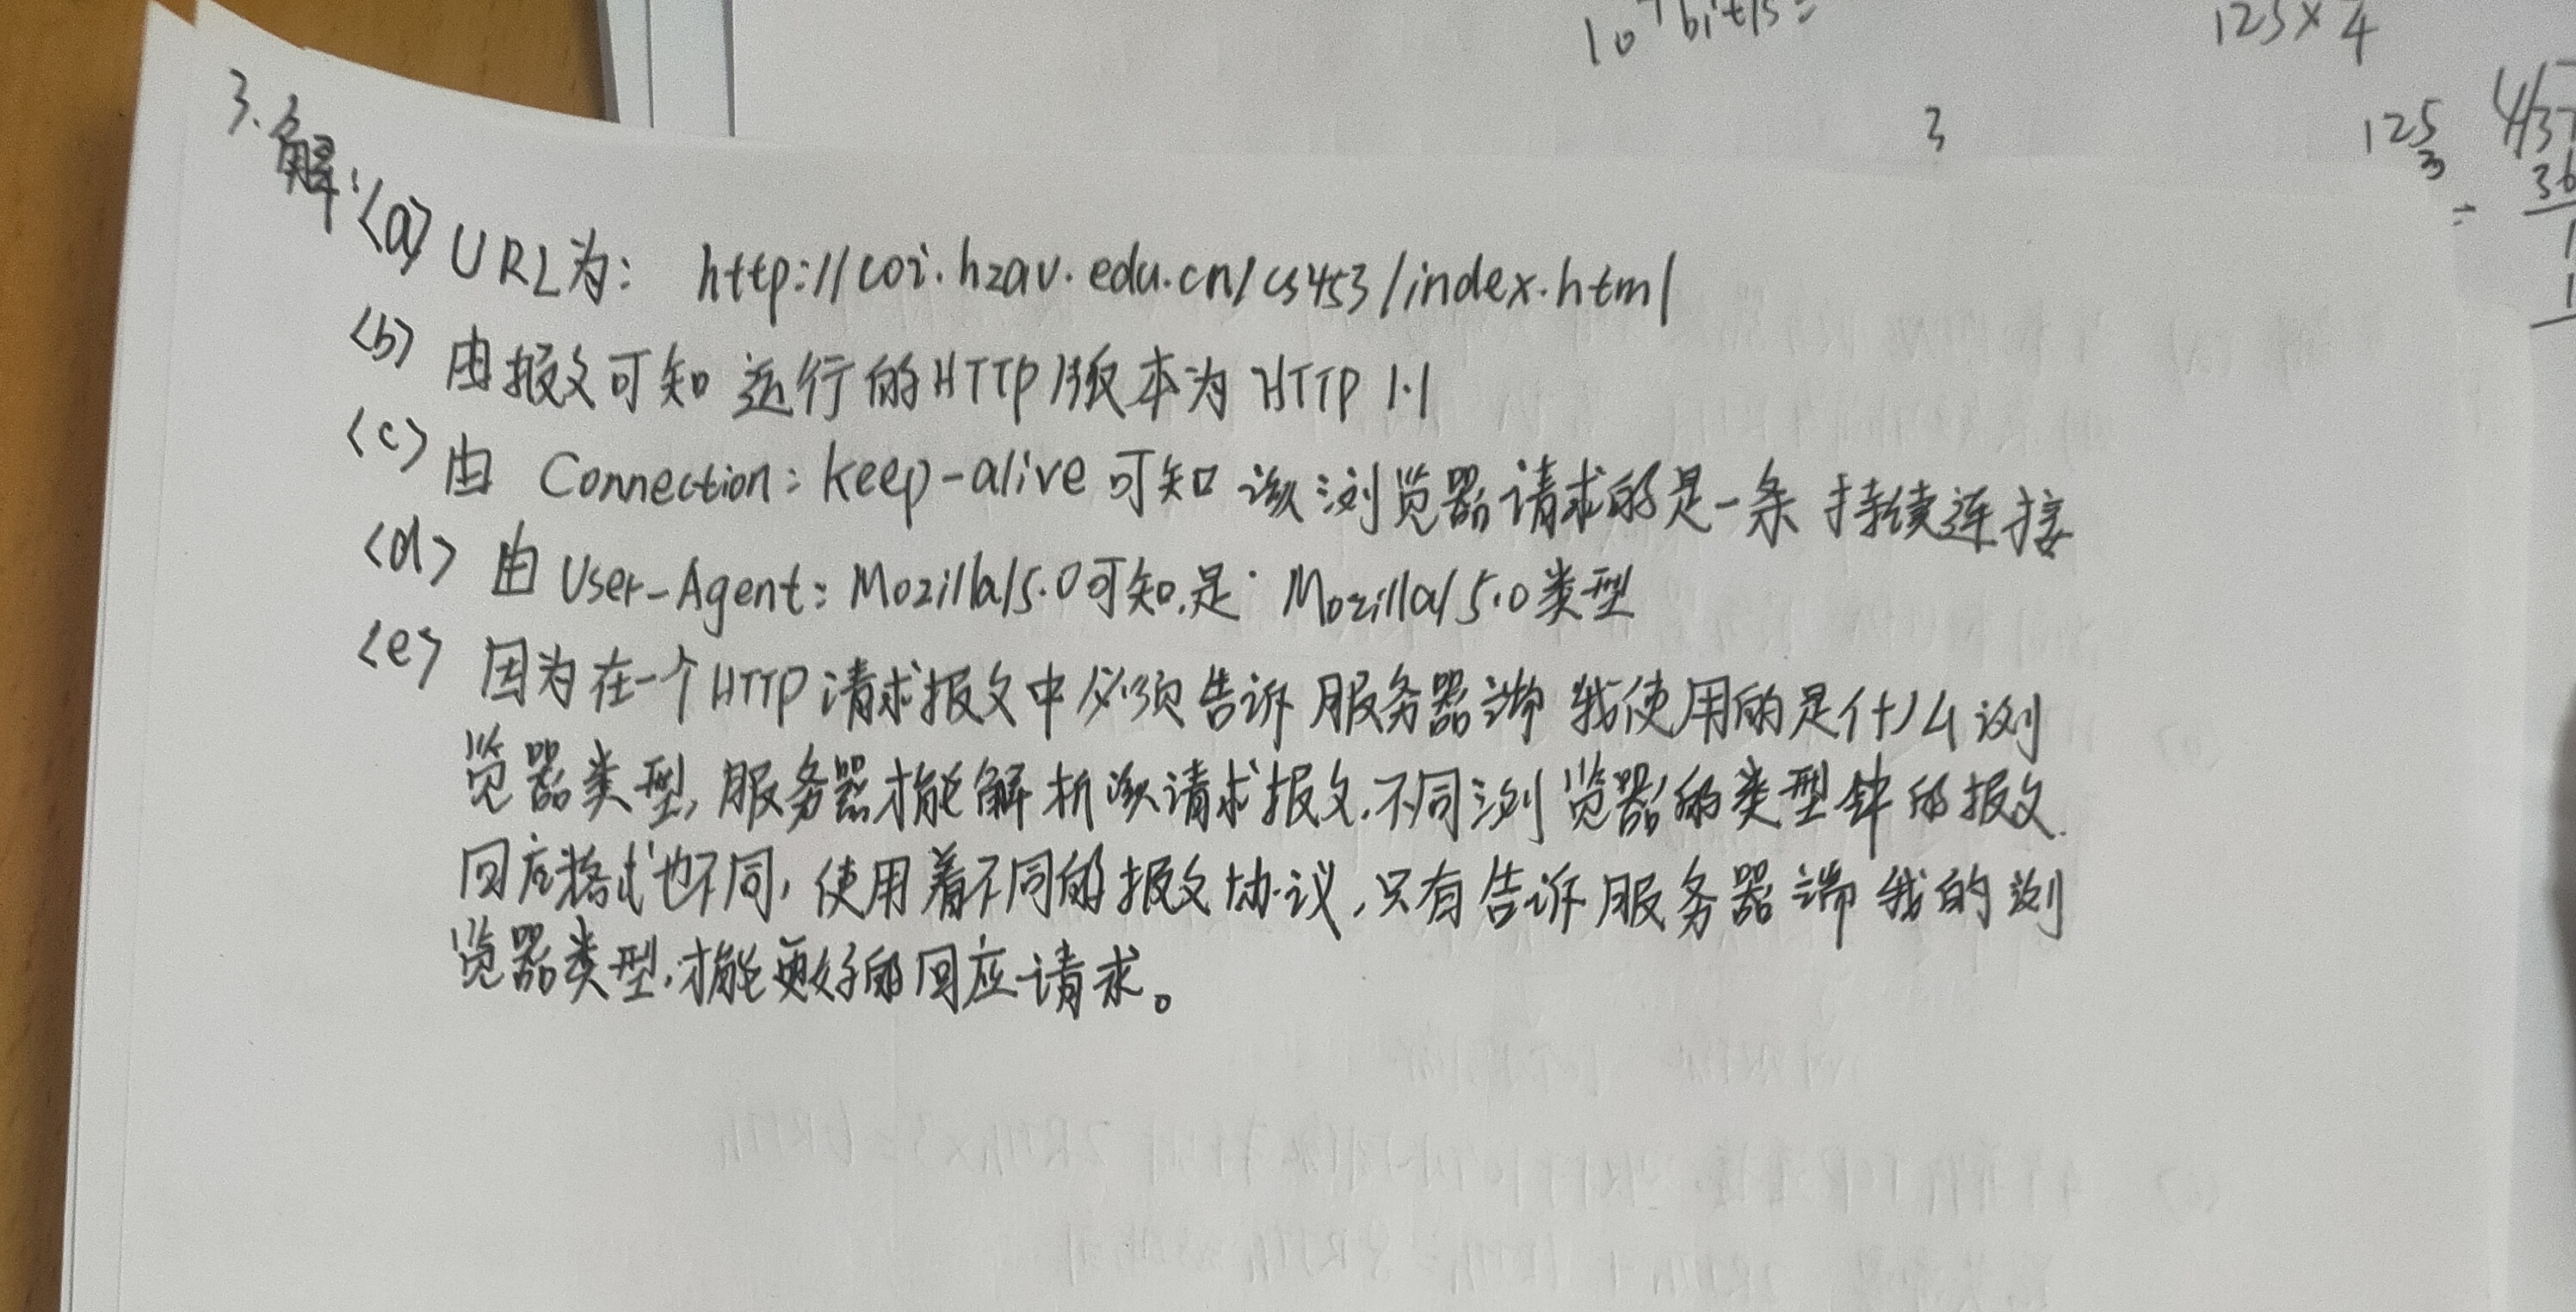 10⁷bit/s =
125×4
3
125
3
=
4/37
36
1
1
3.解:<a> URL为: http://coi.hzau.edu.cn/cs453/index.html
<b> 由报文可知 运行的HTTP版本为 HTTP 1.1
<c> 由 Connection: keep-alive 可知 该浏览器请求的是一条 持续连接
<d> 由 User-Agent: Mozilla/5.0可知,是 Mozilla/5.0类型
<e> 因为在一个HTTP请求报文中必须告诉服务器端 我使用的是什么浏
览器类型,服务器才能解析该请求报文.不同浏览器的类型 的报文
回应格式也不同,使用着不同的报文协议,只有告诉服务器端 我的浏
览器类型,才能更好的回应请求。